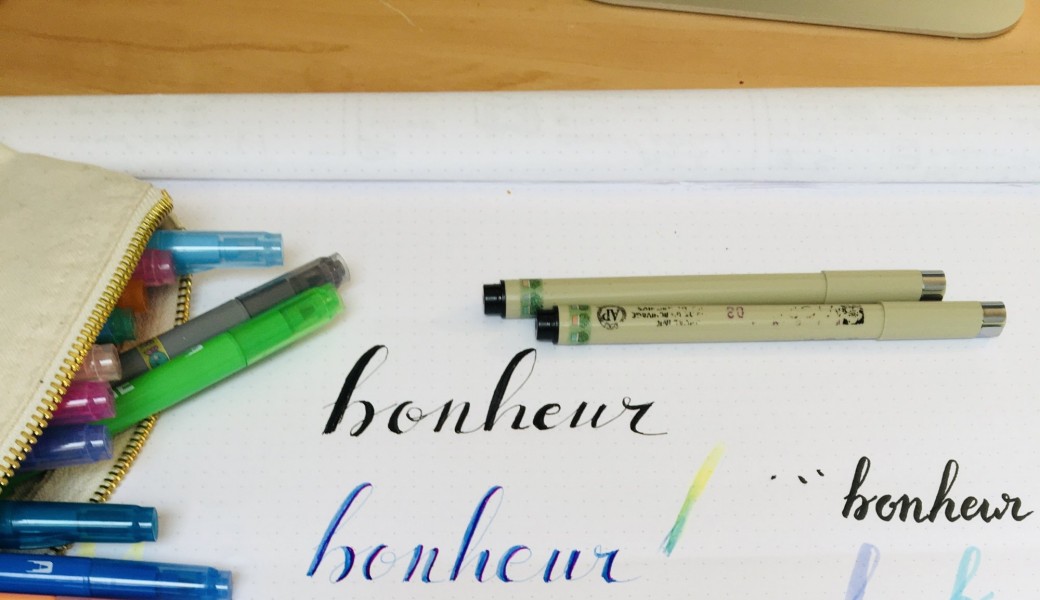 bonheur
bonheur
bonheur